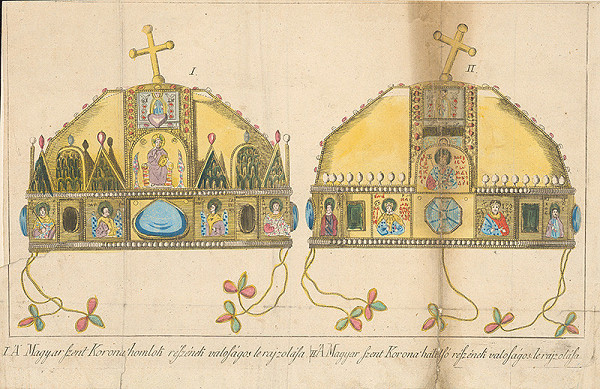 I.
II.
I. A' Magyar szent Korona homlok részének valoságos le rajzolása. II. A' Magyar szent Korona hátulsó részének valoságos le rajzolása.